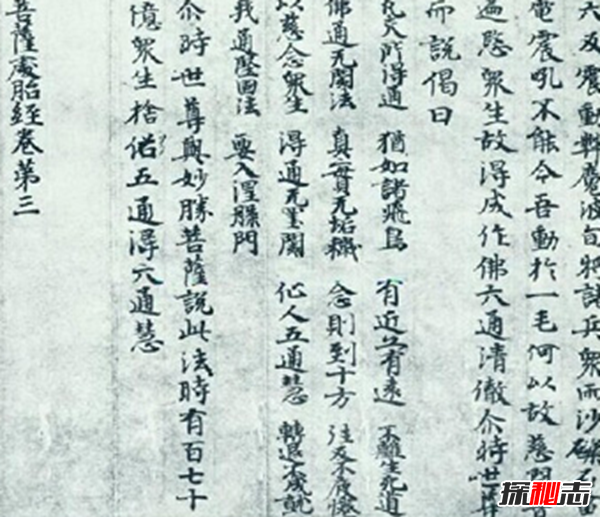 六反震動弊魔波旬將諸兵衆而沙礫石
電震吼不能令吾動於一毛何以故慈
遍愍衆生故得成作佛六通清徹尒時世
而說偈曰
凡夫所得通 猶如諸飛鳥 有近亦有遠 不離生死道
佛通无閡法 真實无垢穢 念則到十方 往反不疲惓
以慈念衆生 得通无罣閡 仙人五通慧 轉退不成就
我通堅固法 要入涅槃門
尒時世尊與妙勝菩薩說此法時有百七十
億衆生捨俗五通得六通慧
菩薩處胎經卷第三
探秘志